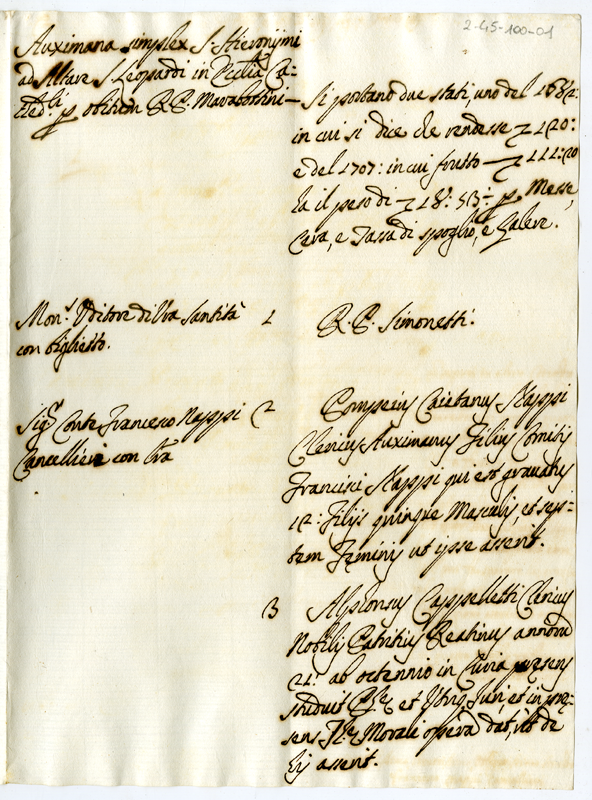 2-45-100-01
Auximana simplex S. Hieronÿmi
ad Altare S. Leopardi in Ecclia Ca-
ted.li p obitum R. P. Marabottini —
Si portano due stati, uno del 168
in cui si dice che rendesse 120:
e del 1707: in cui frutto — 111:20
ha il peso di 18: 53: p Messe,
Cera, e Tassa di spoglio, e Galere.
Mon.r Uditore di Vra Santità
con biglietto.
1 R. P. Simonetti.
Sig.r Conte Francesco Nappi
Cancelliere con lra
2 Pompeius Caietanus Nappi
Clericus Auximanus Filius Comitis
Francisci Nappi qui est gravatus
12: Filijs quinque Masculis, et sep-
tem Feminis ut ipse asserit.
3 Alphonsus Cappelletti Clericus
Nobilis Patritius Reatinus annorũ
21: ab octennio in Curia praesens
studuit et Iuri, et in prae-
sens Morali operã dat, ut de
his asserit.